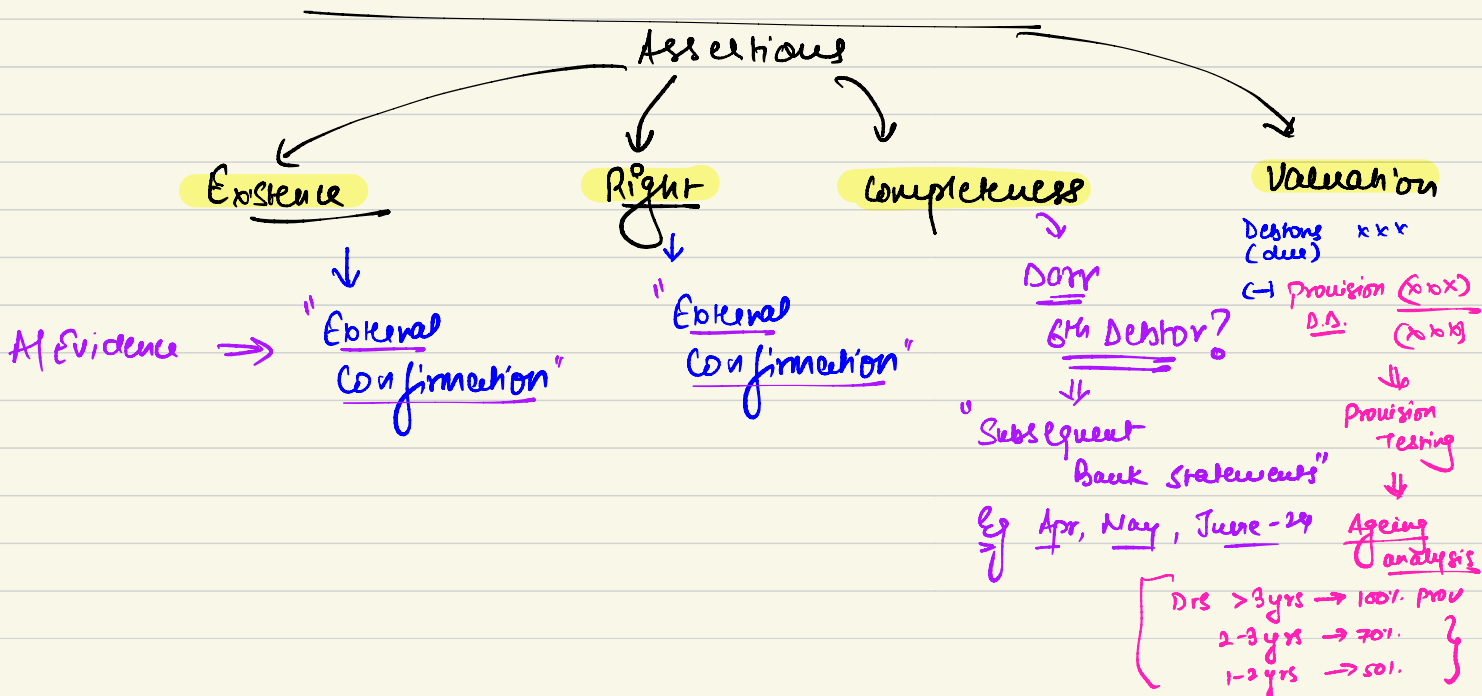 Assertions
Existence
Right
Completeness
Valuation
A/Evidence ⇒
"External
Confirmation"
"External
Confirmation"
Darr
6th Debtor?
"Subsequent
Bank Statements"
Eg Apr, May, June-24
Debtors xxx
(due)
(-) Provision (xxx)
D.D.
(xxx)
Provision
Testing
Ageing
analysis
Drs >3yrs → 100% prov
2-3yrs → 70%
1-2yrs → 50%